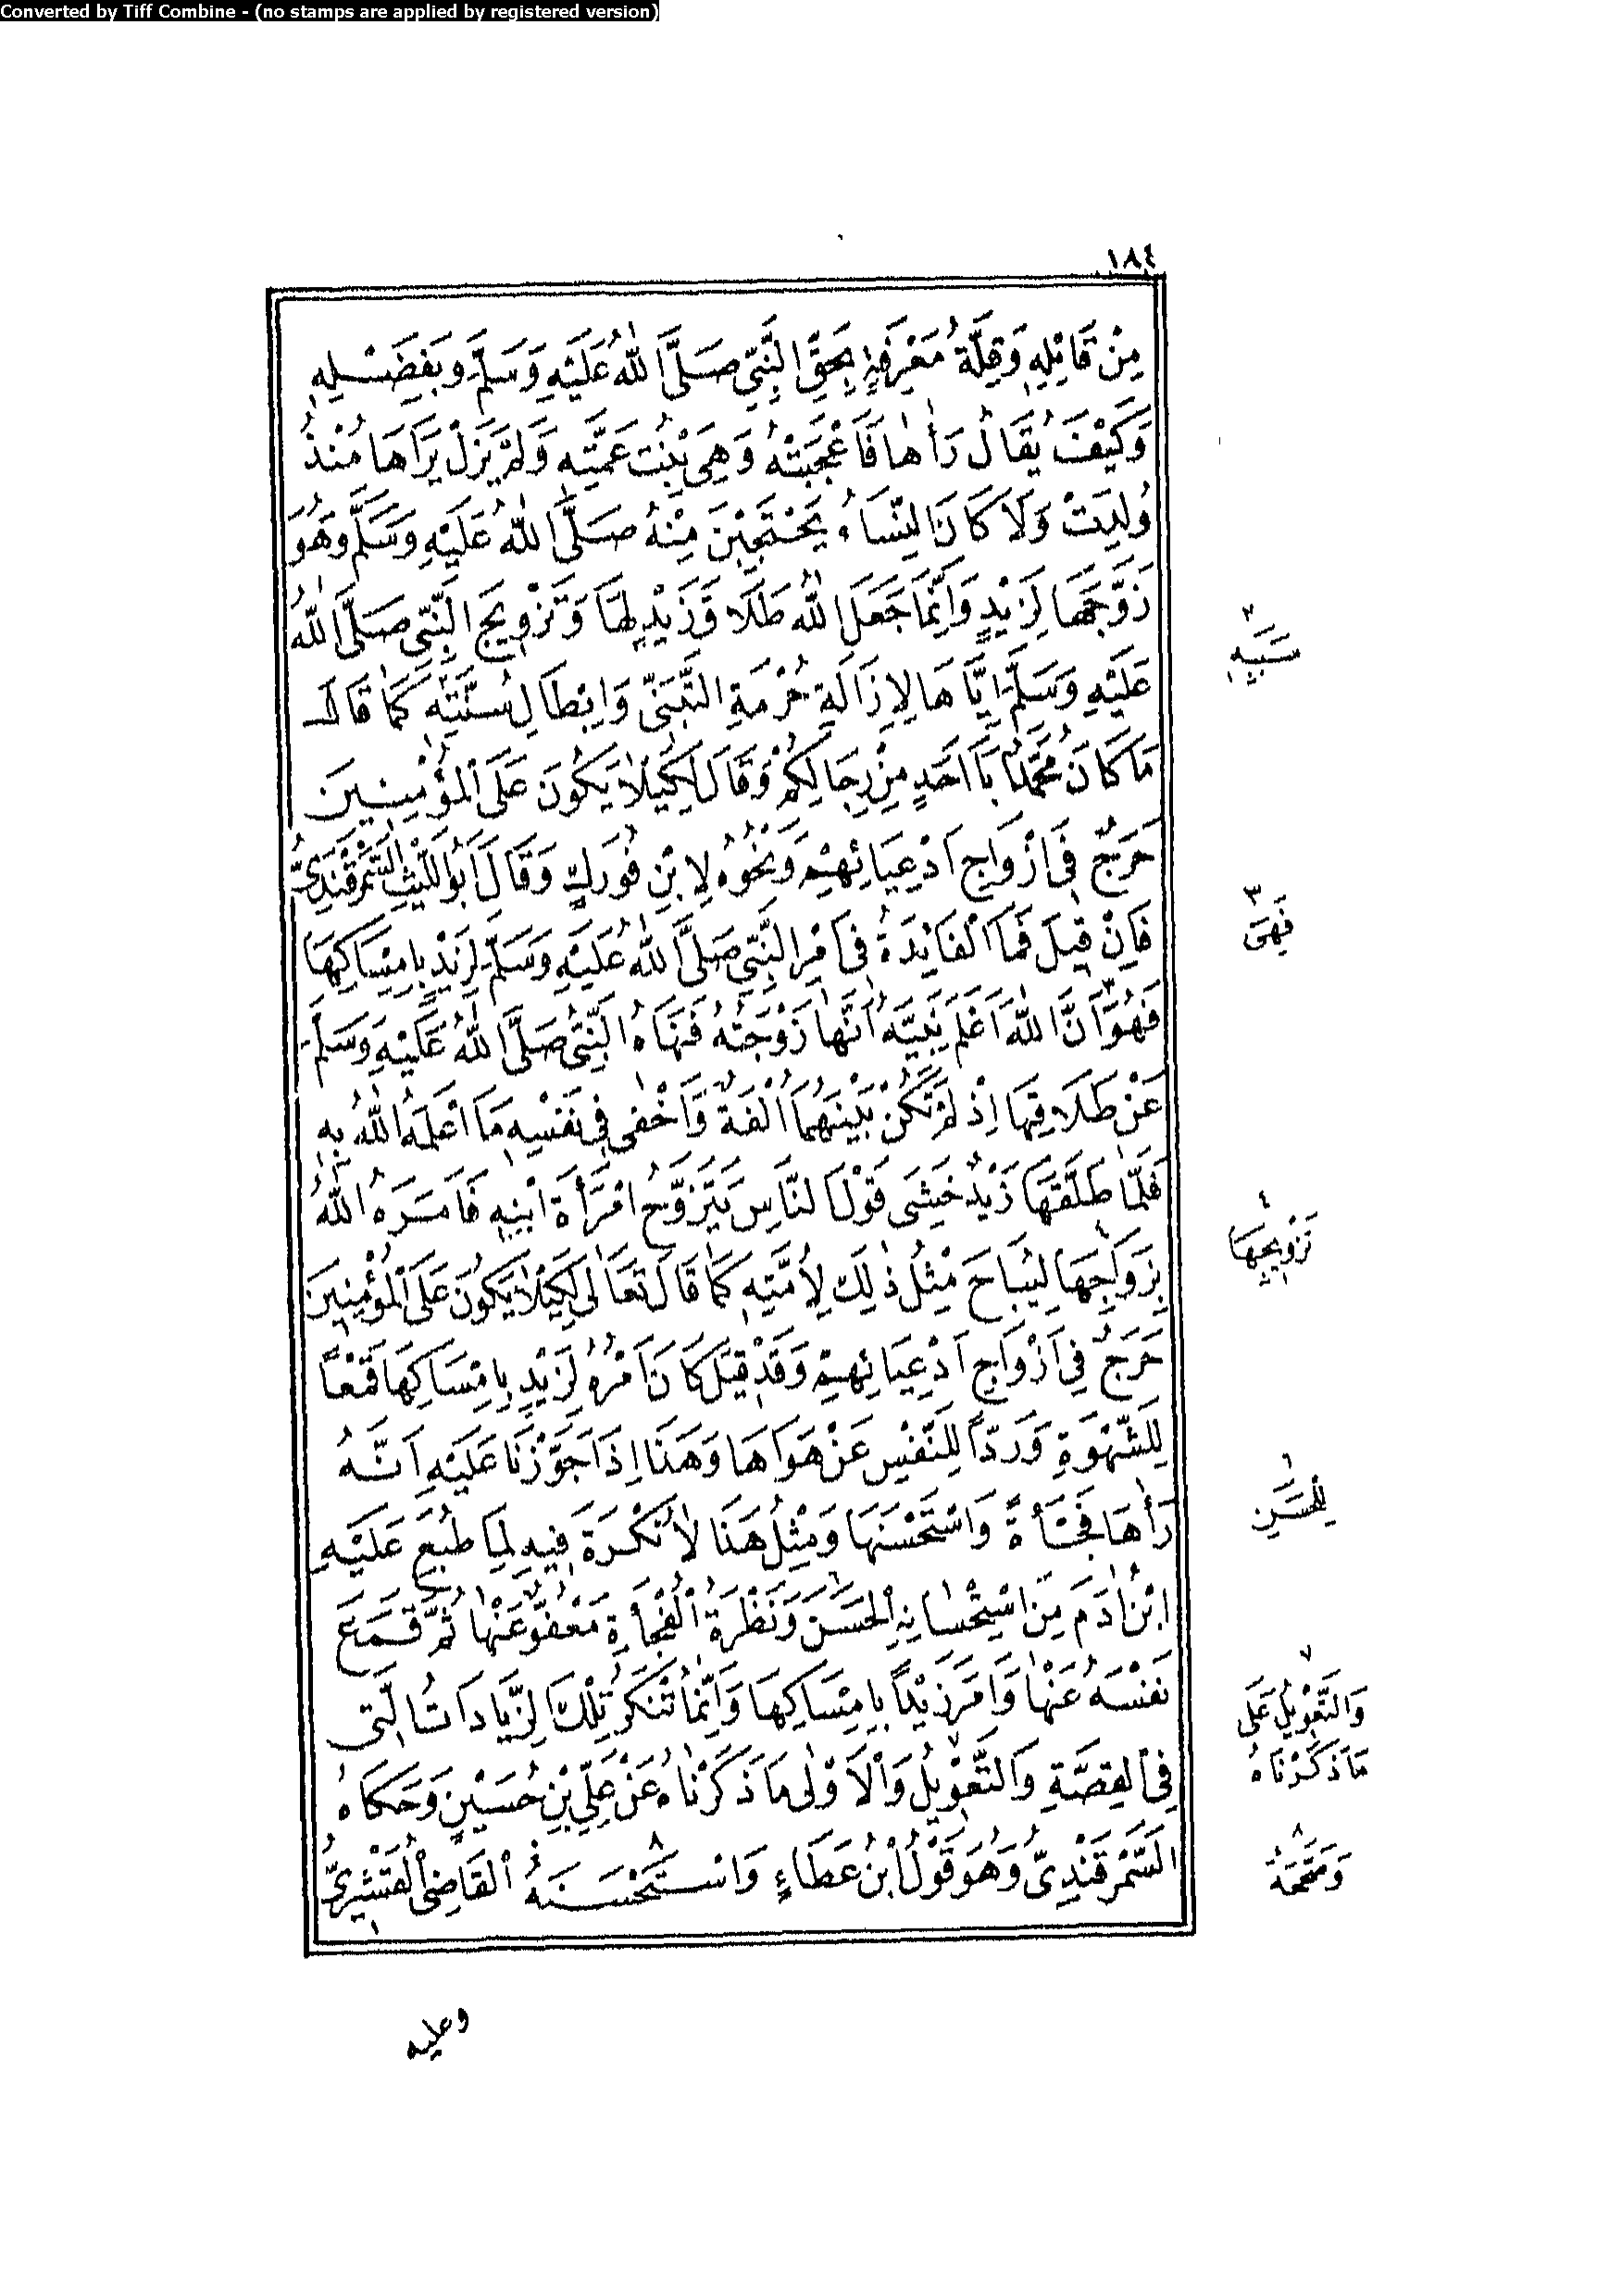 Converted by Tiff Combine - (no stamps are applied by registered version)
١٨٤
مِنْ قَائِلِهِ وَقِلَّةُ مَعْرِفَةٍ بِحَقِّ النَّبِيِّ صَلَّى اللهُ عَلَيْهِ وَسَلَّمَ وَبِفَضْلِهِ
وَكَيْفَ يُقَالُ رَآهَا فَأَعْجَبَتْهُ وَهِيَ بِنْتُ عَمَّتِهِ وَلَمْ يَزَلْ يَرَاهَا مُنْذُ
وُلِدَتْ وَلَا كَانَ النِّسَاءُ يَحْتَجِبْنَ مِنْهُ صَلَّى اللهُ عَلَيْهِ وَسَلَّمَ وَهُوَ
زَوَّجَهَا لِزَيْدٍ وَإِنَّمَا جَعَلَ اللهُ طَلَاقَ زَيْدٍ لَهَا وَتَزْوِيجَ النَّبِيِّ صَلَّى اللهُ
عَلَيْهِ وَسَلَّمَ إِيَّاهَا لِإِزَالَةِ حُرْمَةِ التَّبَنِّي وَإِبْطَالِ سُنَّتِهِ كَمَا قَالَ
مَا كَانَ مُحَمَّدٌ أَبَا أَحَدٍ مِنْ رِجَالِكُمْ وَقَالَ لِكَيْلَا يَكُونَ عَلَى الْمُؤْمِنِينَ
حَرَجٌ فِي أَزْوَاجِ أَدْعِيَائِهِمْ وَنَحْوُهُ لِابْنِ فُورَكٍ وَقَالَ أَبُو اللَّيْثِ السَّمَرْقَنْدِيُّ
فَإِنْ قِيلَ فَمَا الْفَائِدَةُ فِي أَمْرِ النَّبِيِّ صَلَّى اللهُ عَلَيْهِ وَسَلَّمَ لِزَيْدٍ بِإِمْسَاكِهَا
فَهُوَ أَنَّ اللهَ أَعْلَمَ نَبِيَّهُ أَنَّهَا زَوْجَتُهُ فَنَهَاهُ النَّبِيُّ صَلَّى اللهُ عَلَيْهِ وَسَلَّمَ
عَنْ طَلَاقِهَا إِذْ لَمْ تَكُنْ بَيْنَهُمَا أُلْفَةٌ وَأَخْفَى فِي نَفْسِهِ مَا أَعْلَمَهُ اللهُ بِهِ
فَلَمَّا طَلَّقَهَا زَيْدٌ خَشِيَ قَوْلَ النَّاسِ يَتَزَوَّجُ امْرَأَةَ ابْنِهِ فَأَمَرَهُ اللهُ
بِزَوَاجِهَا لِيُبَاحَ مِثْلُ ذٰلِكَ لِأُمَّتِهِ كَمَا قَالَ تَعَالَى لِكَيْلَا يَكُونَ عَلَى الْمُؤْمِنِينَ
حَرَجٌ فِي أَزْوَاجِ أَدْعِيَائِهِمْ وَقَدْ قِيلَ كَانَ أَمْرُهُ لِزَيْدٍ بِإِمْسَاكِهَا قَمْعًا
لِلشَّهْوَةِ وَرَدًّا لِلنَّفْسِ عَنْ هَوَاهَا وَهَذَا إِذَا جَوَّزْنَا عَلَيْهِ أَنَّهُ
رَآهَا فَجْأَةً وَاسْتَحْسَنَهَا وَمِثْلُ هَذَا لَا نُكْرَةَ فِيهِ لِمَا طُبِعَ عَلَيْهِ
ابْنُ آدَمَ مِنَ اسْتِحْسَانِهِ الْحَسَنَ وَنَظْرَةُ الْفَجْأَةِ مَعْفُوٌّ عَنْهَا ثُمَّ قَمَعَ
نَفْسَهُ عَنْهَا وَأَمَرَ زَيْدًا بِإِمْسَاكِهَا وَإِنَّمَا تُنْكَرُ تِلْكَ الزِّيَادَاتُ الَّتِي
فِي الْقِصَّةِ وَالتَّعْوِيلُ وَالْأَوْلَى مَا ذَكَرْنَاهُ عَنْ عَلِيِّ بْنِ حُسَيْنٍ وَحَكَاهُ
السَّمَرْقَنْدِيُّ وَهُوَ قَوْلُ ابْنُ عَطَاءٍ وَاسْتَحْسَنَهُ الْقَاضِي الْقُشَيْرِيُّ
وعليه
سَبَبِهِ
٣
فَهِيَ
٤
تَزْوِيجِهَا
٦
لِلْحَسَنِ
٧
وَالتَّعْوِيلُ عَلَى
مَا ذَكَرْنَاهُ
٨
وَصَحَّحَهُ